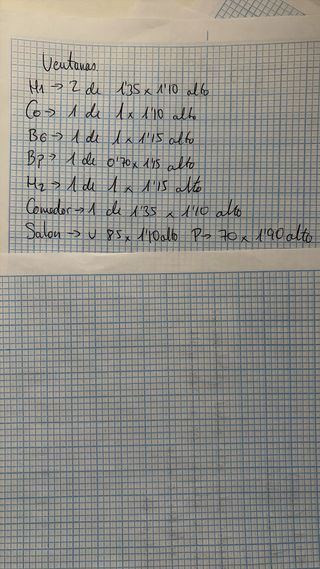 Ventanas.
H1 → 2 de 1'35 x 1'10 alto
Co → 1 de 1 x 1'10 alto
BG → 1 de 1 x 1'15 alto
BP → 1 de 0'70 x 1'15 alto
H2 → 1 de 1 x 1'15 alto
Comedor → 1 de 1'35 x 1'10 alto
Salon → V 85 x 1'10 alto P → 70 x 1'90 alto